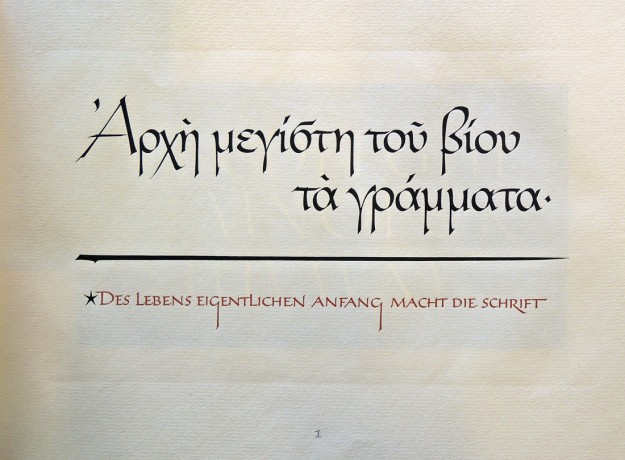 Ἀρχὴ μεγίστη τοῦ βίου
τὰ γράμματα·
★DES LEBENS EIGENTLICHEN ANFANG MACHT DIE SCHRIFT
1